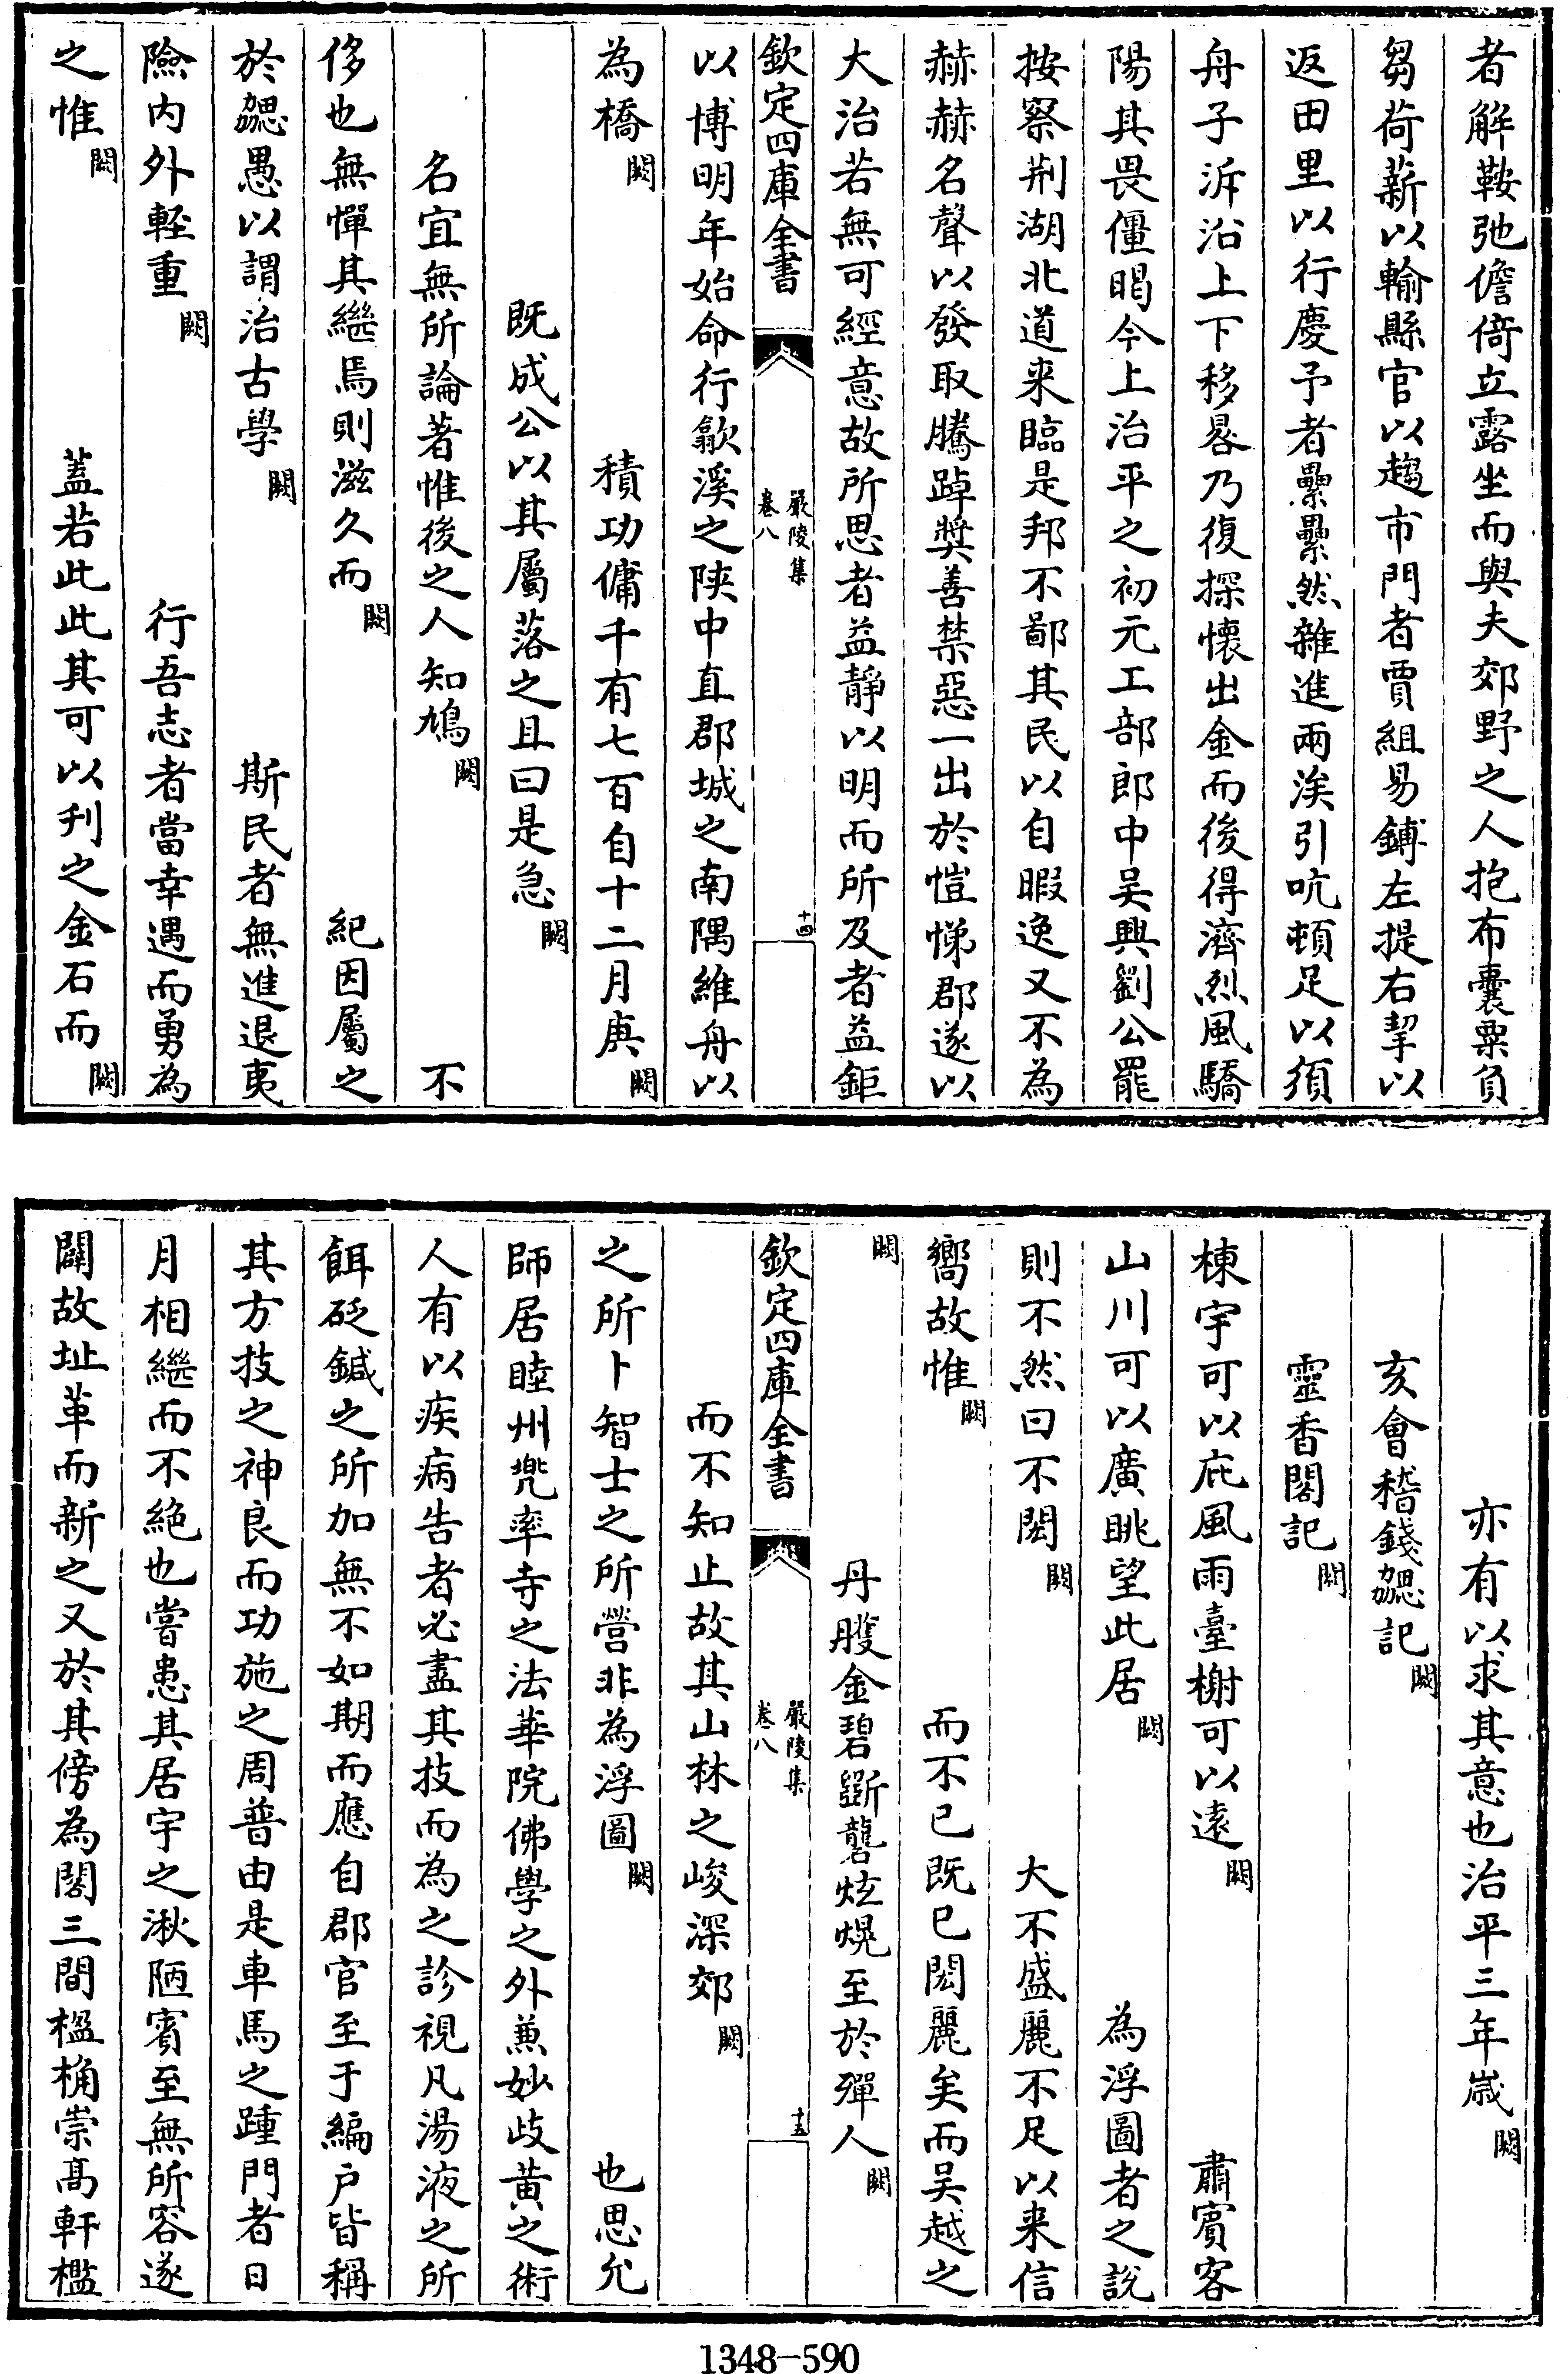 者解鞍弛儋倚立露坐而與夫郊野之人抱布囊粟負
芻荷薪以輸縣官以趨市門者賈組易鏄左提右挈以
返田里以行慶予者纍纍然雜進兩涘引吭頓足以須
舟子泝沿上下移晷乃復探懷出金而後得濟烈風驕
陽其畏僵暍今上治平之初元工部郎中吴興劉公罷
按察荆湖北道来臨是邦不鄙其民以自暇逸又不為
赫赫名聲以發取騰踔奬善禁惡一出於愷悌郡遂以
大治若無可經意故所思者益靜以明而所及者益鉅
欽定四庫全書
嚴陵集
卷八
十四
以博明年始命行歙溪之陜中直郡城之南隅維舟以
為橋闕積功傭千有七百自十二月庚闕
既成公以其屬落之且曰是急闕
名宜無所論著惟後之人知鳩闕不
侈也無憚其繼焉則滋久而闕紀因屬之
於勰愚以謂治古學闕斯民者無進退夷
險内外輊重闕行吾志者當幸遇而勇為
之惟闕蓋若此此其可以刋之金石而闕
亦有以求其意也治平三年嵗闕
亥會稽錢勰記闕
靈香閣記闕
棟宇可以庇風雨臺榭可以遠闕肅賓客
山川可以廣眺望此居闕為浮圖者之說
則不然曰不閎闕大不盛麗不足以来信
嚮故惟闕而不已既已閎麗矣而吴越之
闕丹雘金碧斵礱炫熀至於殫人闕
欽定四庫全書
嚴陵集
卷八
十五
而不知止故其山林之峻深郊闕
之所卜智士之所營非為浮圖闕也思允
師居睦州兠率寺之法華院佛學之外兼妙歧黄之術
人有以疾病告者必盡其技而為之診視凡湯液之所
餌砭鍼之所加無不如期而應自郡官至于編户皆稱
其方技之神良而功施之周普由是車馬之踵門者日
月相繼而不絶也嘗患其居宇之湫陋賓至無所容遂
闢故址革而新之又於其傍為閣三間楹桷崇髙軒檻
1348-590